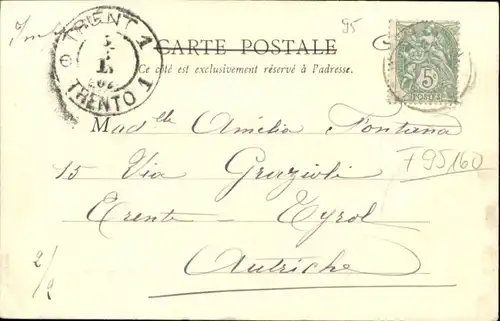 Im
TRIENT 1
TRENTO 1
95
CARTE POSTALE
Ce côté est exclusivement réservé à l'adresse.
5c
POSTES
Madlle Amélia Fontana
F95160
15 Via Grazioli
Trente - Tyrol
Autriche
2/2